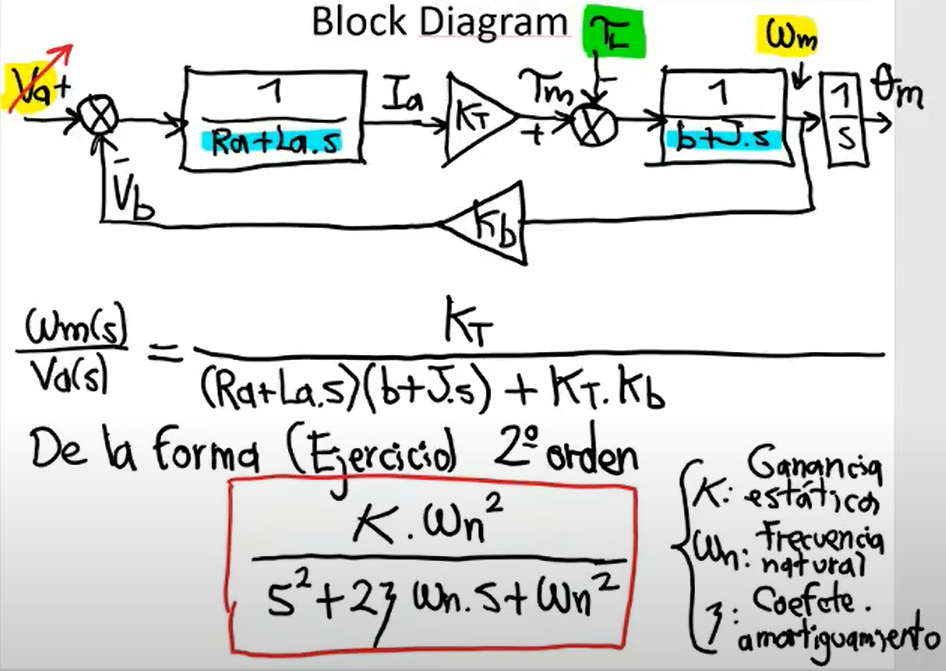 Block Diagram
T_L
ω_m
V_a +
1
R_a+L_a.s
I_a
K_T
T_m
+
-
1
b+J.s
1
s
θ_m
-
V_b
K_b
ω_m(s)
V_a(s)
=
K_T
(R_a+L_a.s)(b+J.s) + K_T.K_b
De la forma (Ejercicio) 2º orden
K.ω_n²
s²+2ζ ω_n.s+ω_n²
K: Ganancia
estática
ω_n: Frecuencia
natural
ζ: Coefcte.
amortiguamiento